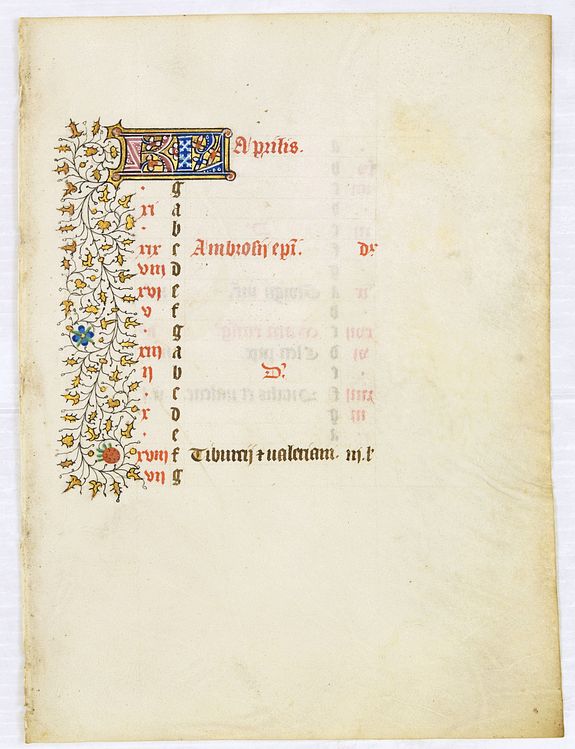 KL Aprilis.
. g
xi a
. b
xix c Ambrosij epi. dx
viij d
xvj e
v f
. g
xiij a
ij b D.
. c
x d
. e
xviij f Tiburcij ⁊ ualeriani. iij. l
vij g